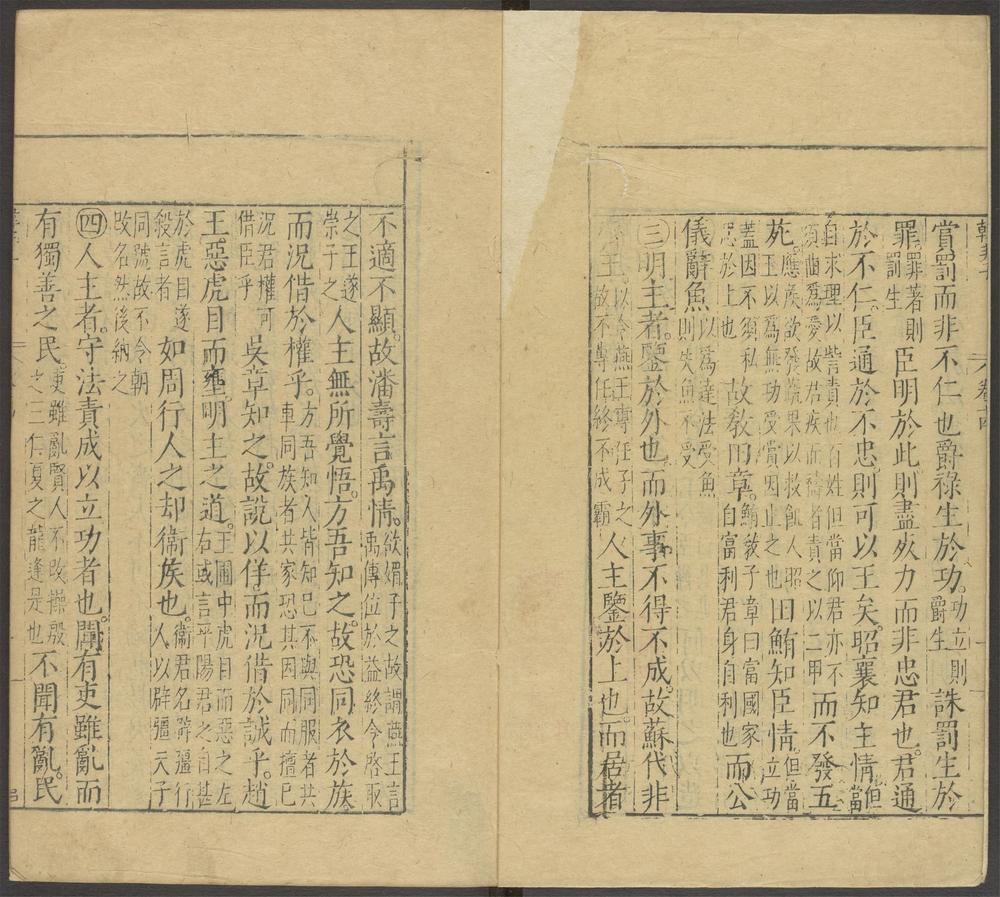 韓非子 卷十四 十一
賞罰而非不仁也爵祿生於功。功立則爵生誅罰生於
罪。罪著則罰生臣明於此則盡死力而非忠君也。君通
於不仁。臣通於不忠。則可以王矣。昭襄知主情但當
自求理以訾責也百姓但當仰君亦不須曲為愛故君疾而禱者責之以二甲而不發五
苑。應侯欲發蔬果以救飢人昭王以為無功受賞因止之也田鮪知臣情。但當立功
蓋因不須私忠於上也故教田章。鮪教子章曰富國家自富利君身自利也而公
儀辭魚以為違法受魚則失魚不受
㊂明主者。鑒於外也。而外事不得不成。故蘇代非
王。以令燕王專任子之故不專任終不成霸人主鑒於上也。而居者
不適不顯。故潘壽言禹情。欲媚子之故謂燕王言禹傳位於益終令啓取
之王遂崇子之人主無所覺悟。方吾知之。故恐同衣於族
而況借於權乎。方吾知人皆知己不與同服者共車同族者共家恐其因同而擅己
況君權可借臣乎吳章知之。故說以佯。而況借於誠乎。趙
王惡虎目而壅。明主之道。王圃中虎目而惡之左右或言平陽君之目甚
於虎目遂殺言者如周行人之却衛侯也。衛君名辟疆行人以辟疆天子
同號故不令朝改名然後納之
㊃人主者。守法責成以立功者也。聞有吏雖亂而
有獨善之民吏雖亂賢人不改操殷之三仁夏之龍逢是也不聞有亂民